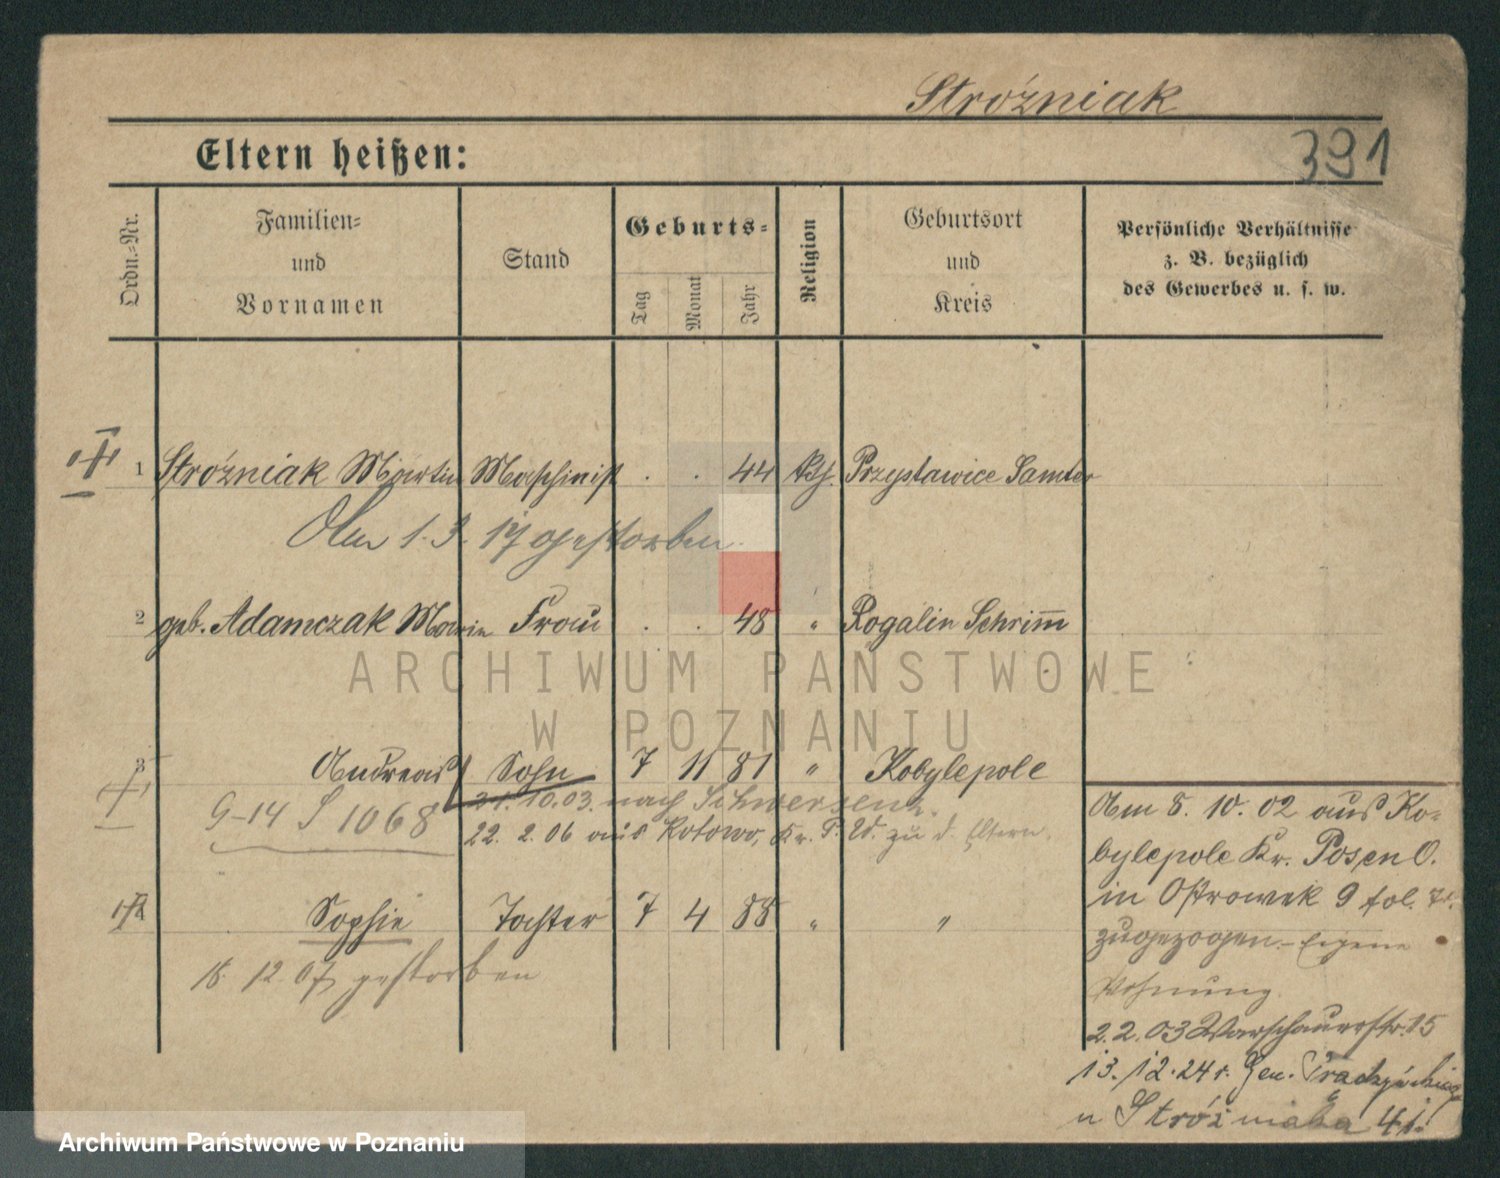 Stróżniak
391
Eltern heißen:
Ordn.-Nr.
Familien-
und
Vornamen
Stand
Geburts-
Tag
Monat
Jahr
Religion
Geburtsort
und
Kreis
Persönliche Verhältnisse
z. B. bezüglich
des Gewerbes u. s. w.
1 Stróżniak Martin Maschinist . . 44 kth. Przystawice Samter
Am 1. 3. 17 gestorben.
2 geb. Adamczak Marie Frau . . 48 " Rogalin Schrimm
3 Andreas Sohn 7 11 81 " Kobylepole
31. 10. 03. nach Schwersenz.
G-14 S 1068
22. 2. 06 aus Kotowo, Kr. P. W. zu d. Eltern.
4 Sophie Tochter 7 4 88 " "
18. 12. 07 gestorben
Am 8. 10. 02 aus Ko-
bylepole Kr. Posen O.
in Ostrowek 9 fol.
zugezogen. – Eigene
Wohnung.
2. 2. 03 Warschauerstr. 15
13. 12. 24 r. Gen.
u Stróżniaka 41.
ARCHIWUM PAŃSTWOWE
W POZNANIU
Archiwum Państwowe w Poznaniu